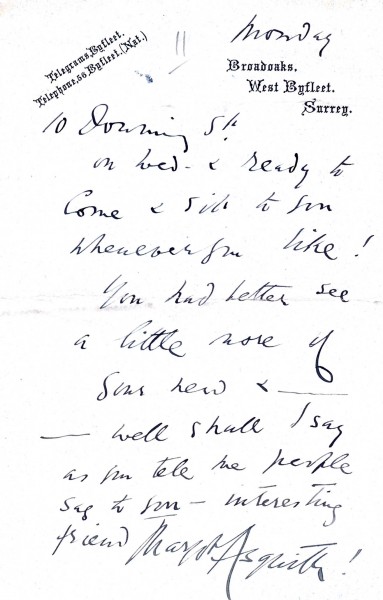 Monday
Telegrams, Byfleet.
Telephone, 56 Byfleet. (Nat.)
11
Broadoaks,
West Byfleet.
Surrey.
10 Downing St.
on Wed- & ready to
come & sit to you
whenever you like!
You had better see
a little more of
your new & ——
— well shall I say
as you tell me people
say to you — interesting
friend Margot Asquith!